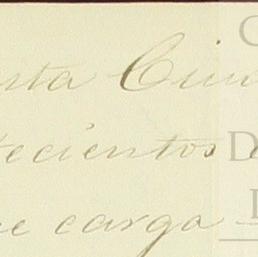 sta Ciu
tecientos
e carga